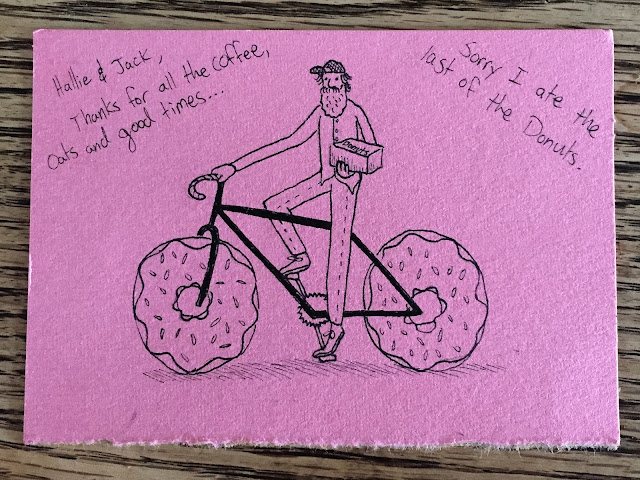 Hallie & Jack,
Thanks for all the coffee,
Oats and good times...
Sorry I ate the
last of the Donuts.
Donuts